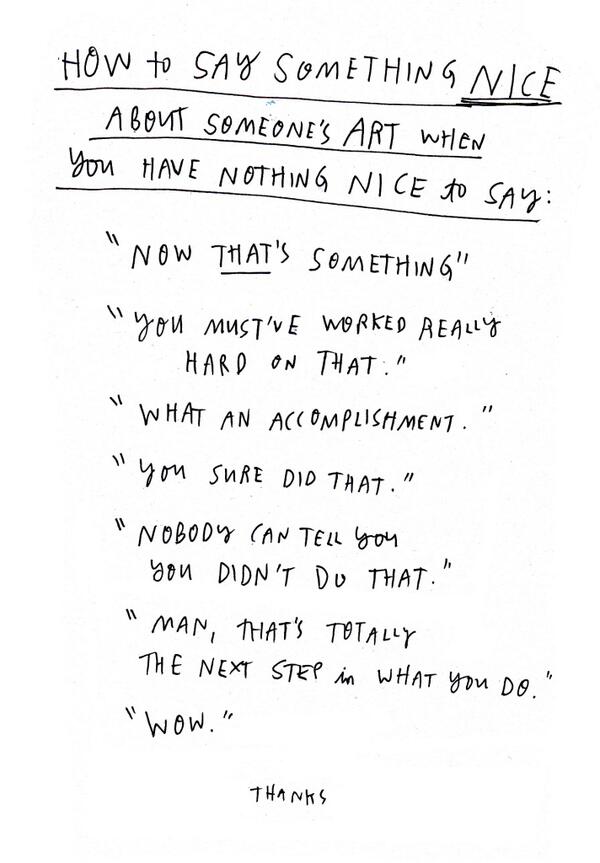 HOW to SAY SOMETHING NICE
ABOUT SOMEONE'S ART WHEN
you HAVE NOTHING NICE to SAY:
"NOW THAT'S SOMETHING"
"you MUST'VE WORKED REALLY
HARD ON THAT."
"WHAT AN ACCOMPLISHMENT."
"you SURE DID THAT."
"NOBODY CAN TELL you
you DIDN'T DO THAT."
"MAN, THAT'S TOTALLY
THE NEXT STEP in WHAT you DO."
"WOW."
THANKS